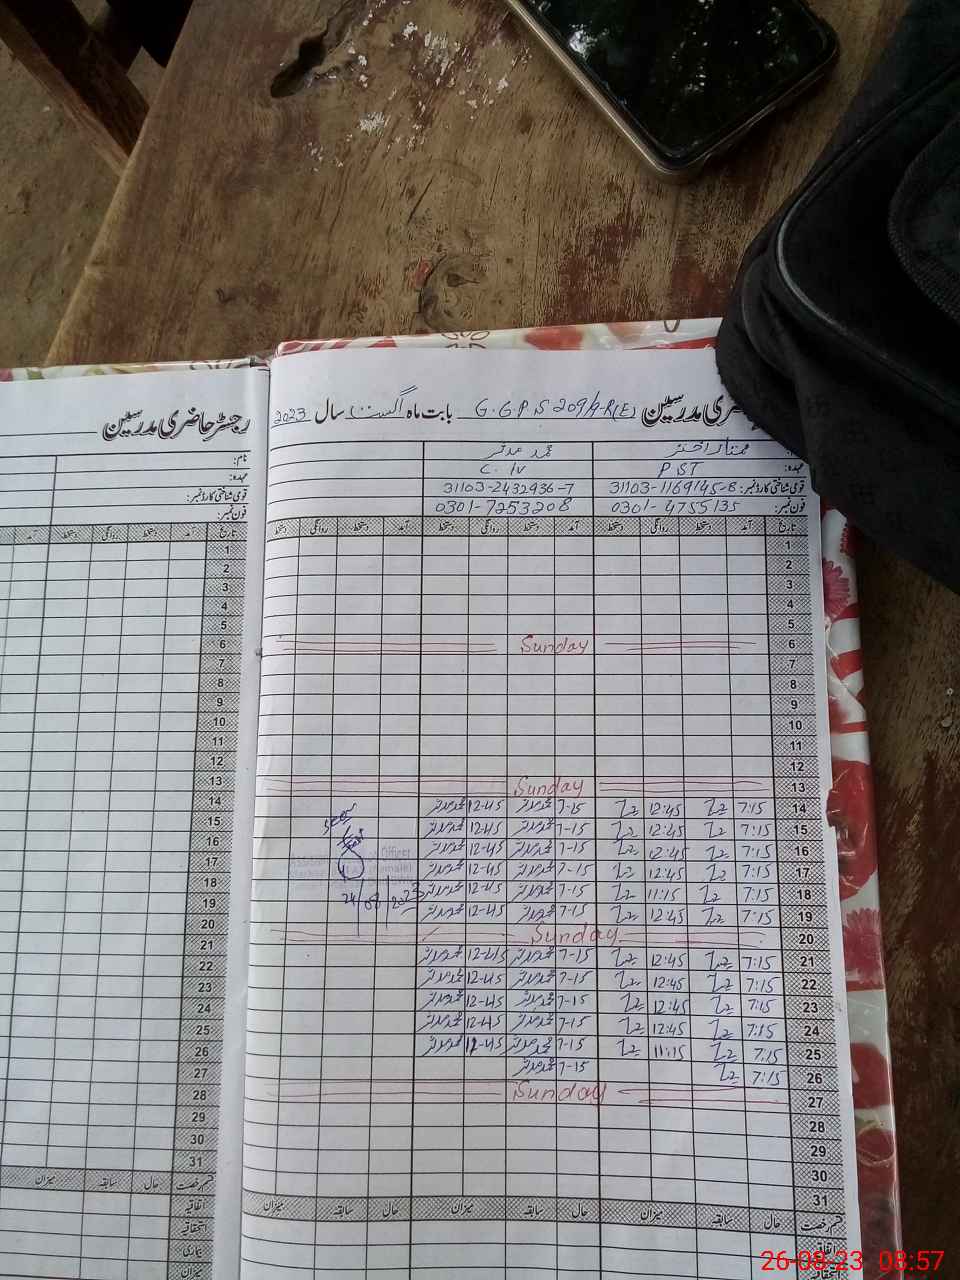 رجسٹر حاضری مدرسین G.G.P.S 209/9-R(E) بابت ماہ اگست سال 2023
ممتاز اختر محمد مدثر
عہدہ: PST C.IV
قومی شناختی کارڈ نمبر: 31103-1169145-8 31103-2432936-7
فون نمبر: 0301-4755135 0301-7253208
تاریخ آمد دستخط روانگی دستخط آمد دستخط روانگی دستخط آمد دستخط روانگی دستخط
1
2
3
4
5
6 Sunday
7
8
9
10
11
12
13 Sunday
14 7:15 12:45 7-15 محمد مدثر 12-45 محمد مدثر
15 7:15 12:45 7-15 محمد مدثر 12-45 محمد مدثر
16 7:15 12:45 7-15 محمد مدثر 12-45 محمد مدثر
17 7:15 12:45 7-15 محمد مدثر 12-45 محمد مدثر
18 7:15 11:15 7-15 محمد مدثر 12-45 محمد مدثر
19 7:15 12:45 7-15 محمد مدثر 12-45 محمد مدثر
20 Sunday
21 7:15 12:45 7-15 محمد مدثر 12-45 محمد مدثر
22 7:15 12:45 7-15 محمد مدثر 12-45 محمد مدثر
23 7:15 12:45 7-15 محمد مدثر 12-45 محمد مدثر
24 7:15 12:45 7-15 محمد مدثر 12-45 محمد مدثر
25 7:15 11:15 7-15 محمد مدثر 12-45 محمد مدثر
26 7:15 7-15 محمد مدثر
27 Sunday
28
29
30
31
قسم رخصت حال سابقہ میزان حال سابقہ میزان حال سابقہ میزان
اتفاقیہ
استحقاقیہ
Seen
24/08/2023
رجسٹر حاضری مدرسین
نام:
عہدہ:
قومی شناختی کارڈ نمبر:
فون نمبر:
تاریخ آمد دستخط روانگی دستخط آمد
1
2
3
4
5
6
7
8
9
10
11
12
13
14
15
16
17
18
19
20
21
22
23
24
25
26
27
28
29
30
31
قسم رخصت حال سابقہ میزان
اتفاقیہ
استحقاقیہ
بیماری
میزان
26-08-23 08:57